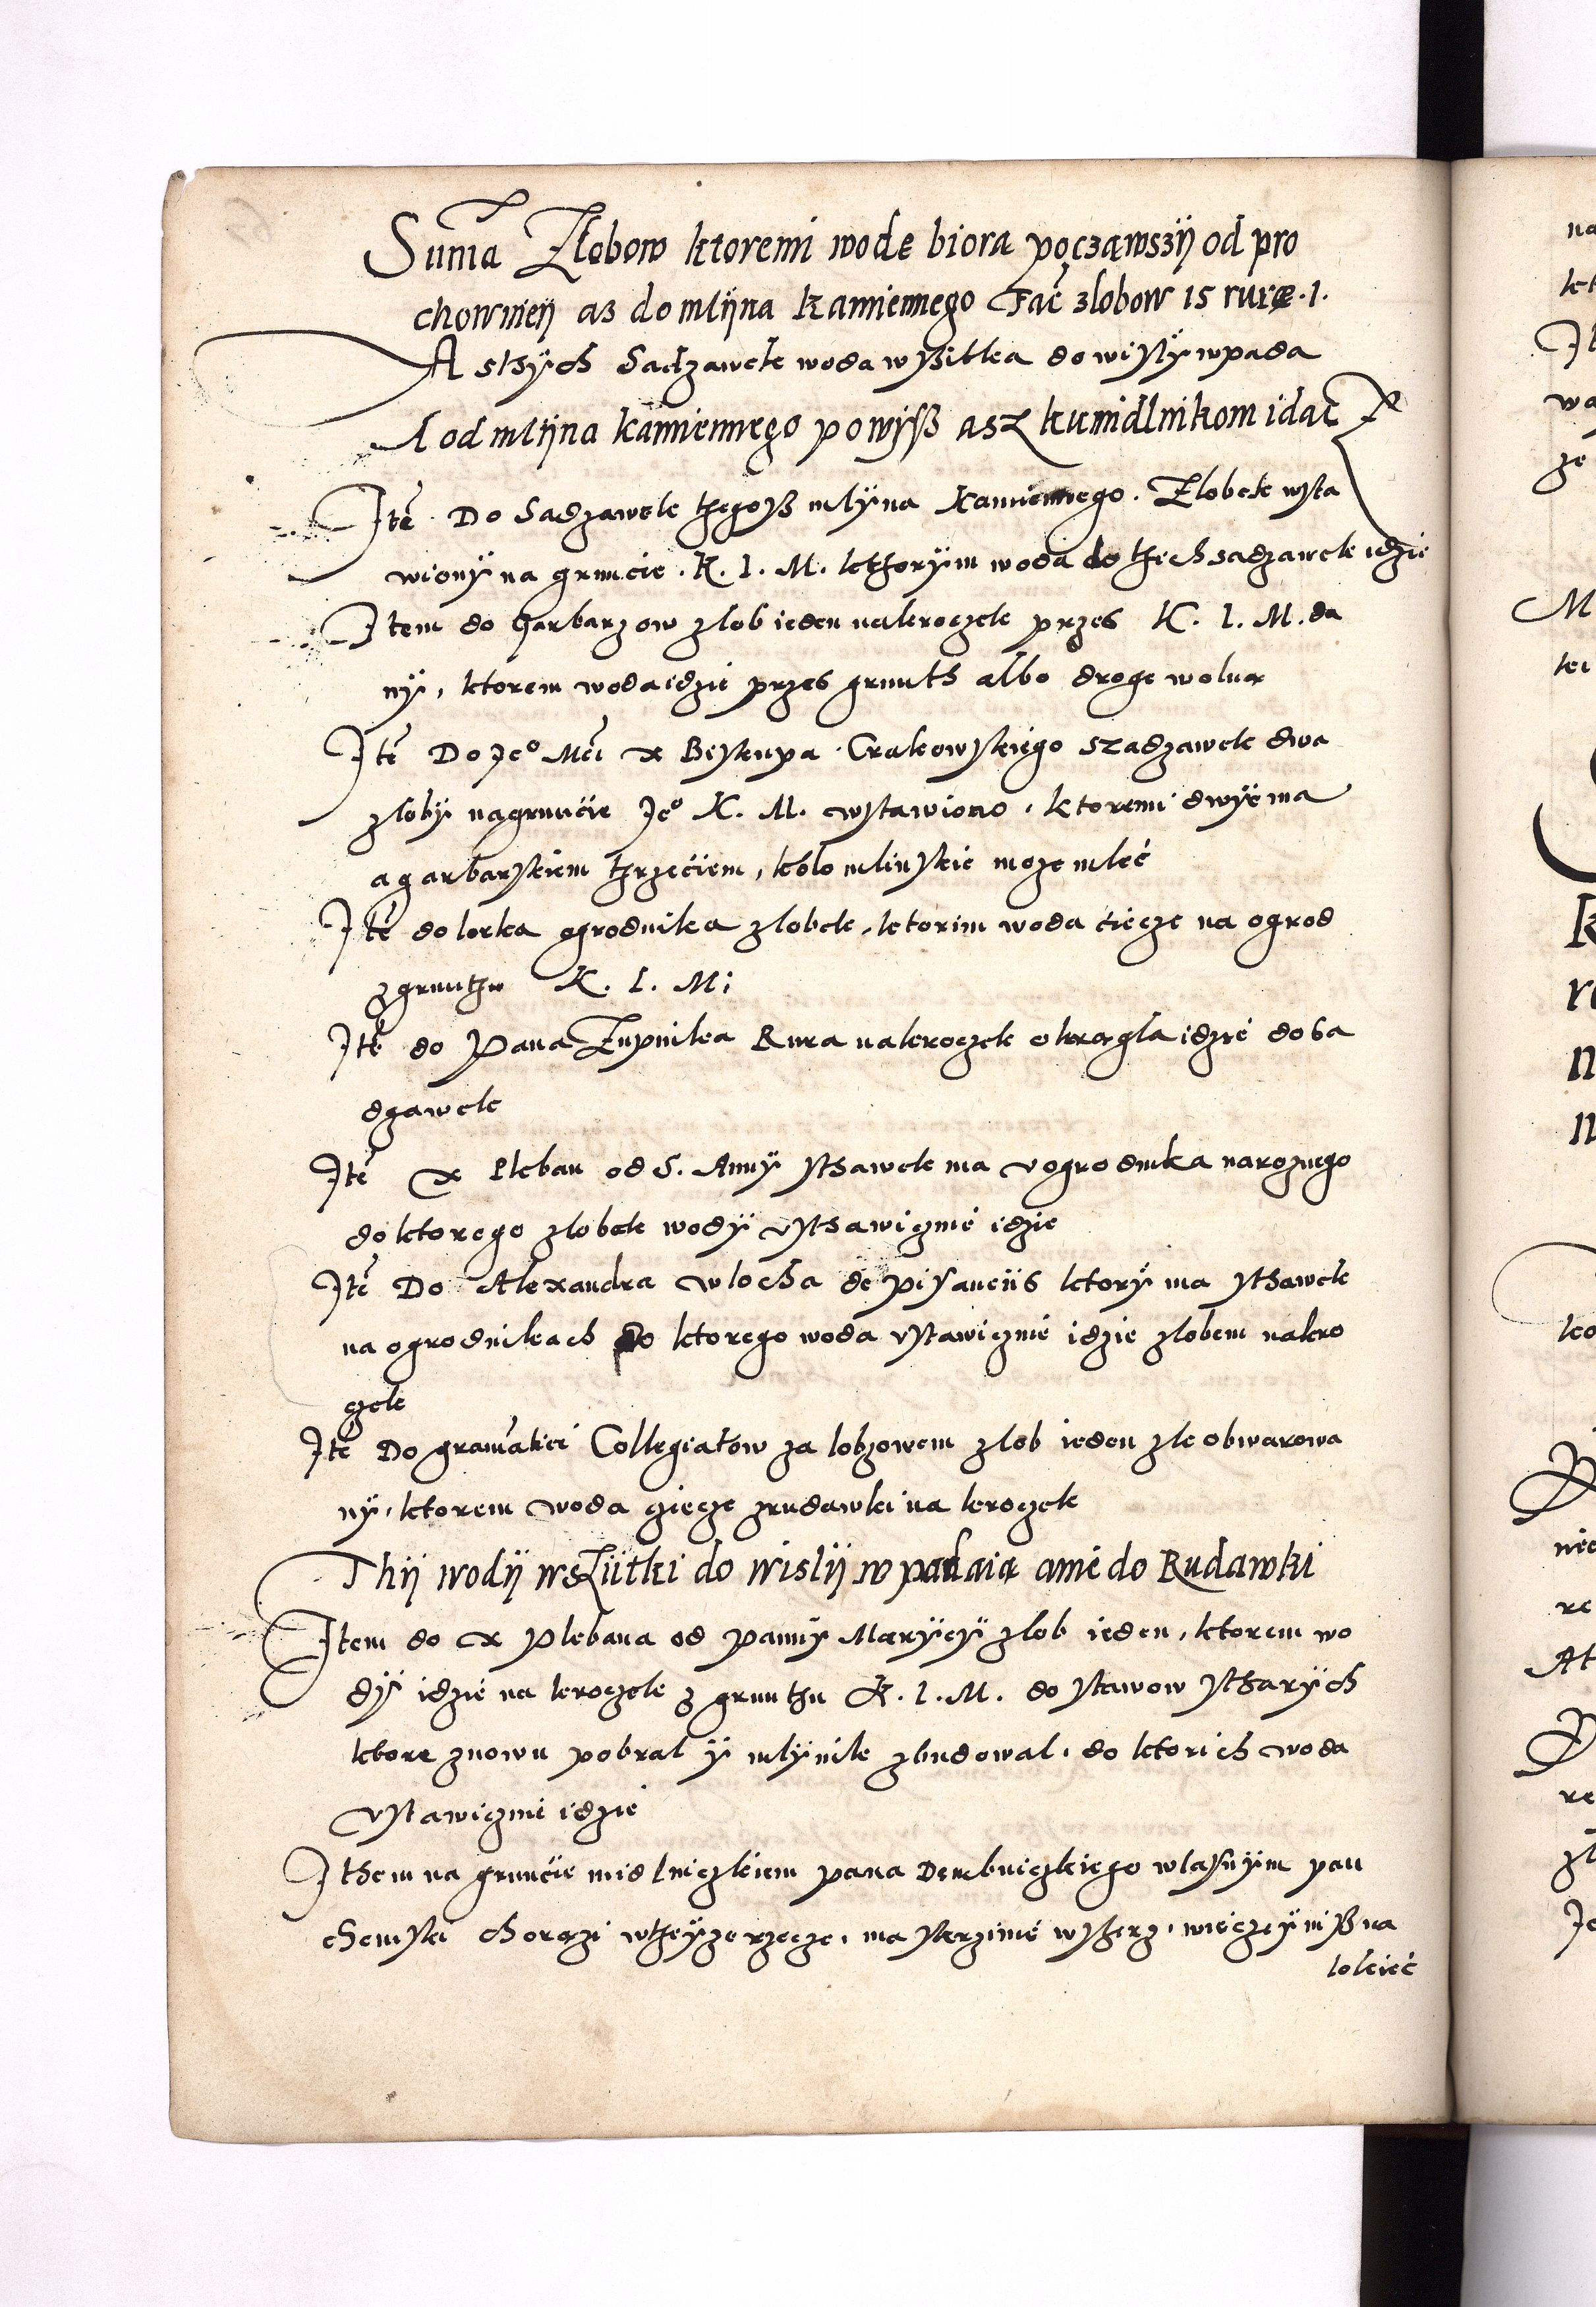 Suma Złobow ktoremi wode biora począwszÿ od pro
chowneÿ as do mlÿna kamiennego Facit zlobow 15 rurę .1.
A sthÿch Sadzawek woda wszitka do wislÿ wpada
A od mlÿna kamiennego powÿß asz ku midlnikom idac
Ité Do Sadzawek thegoß mlÿna Kamiennego. Zlobek wsta
wionÿ na gruncie. K. I. M. kthorÿm woda do thich sadzawek idzie
Item do Garbarzow zlob ieden nakroczek przes K. I. M. da
nÿ, ktorem woda idzie przes grunth albo droge wolna
Ité Do Je° Mći x Biskupa Crakowskiego szadzawek dwa
zlobÿ nagruncie Je° K. M. wstawiono, ktoremi dwÿema
a garbarskiem thrzeciem, kolo mlinskie moze mleć
Ité do lorka ogrodnika zlobek, ktorim woda ciecze na ogrod
zgrunthu K. I. M;
Ité do Pana Zupnika Rura nakroczek okragla idzie do sa
dzawek
Ité x Pleban od S. Annÿ sthawek ma v ogrodnika naroznego
do ktorego zlobek wodÿ vsthawicznie idzie
Ité Do Alexandra wlocha de pisanciis ktorÿ ma sthawek
na ogrodnikach do ktorego woda vstawicznie idzie zlobem nakro
czek
Ité Do gramatici Collegiatow za lobzowem zlob ieden zle obwarowa
nÿ, ktorem woda ziecze zrudawki na kroczek
Thÿ wodÿ wszÿtki do wislÿ wpadaią a nie do Rudawki
Item do x Plebana od pannÿ Marÿeÿ zlob ieden, ktorem wo
dÿ idzie na kroczek z grunthu K. I. M. do stawow stharÿch
ktore znowu pobral ÿ mlÿnik zbudowal, do ktorich woda
vstawicznie idzie
Ithem na gruncie midlniczkiem pana Dembniczkiego wlasnÿm pan
chemski chorązi wtheÿze rzecze, ma skrzinie wsterz, wieczeÿ niß na
lokieć